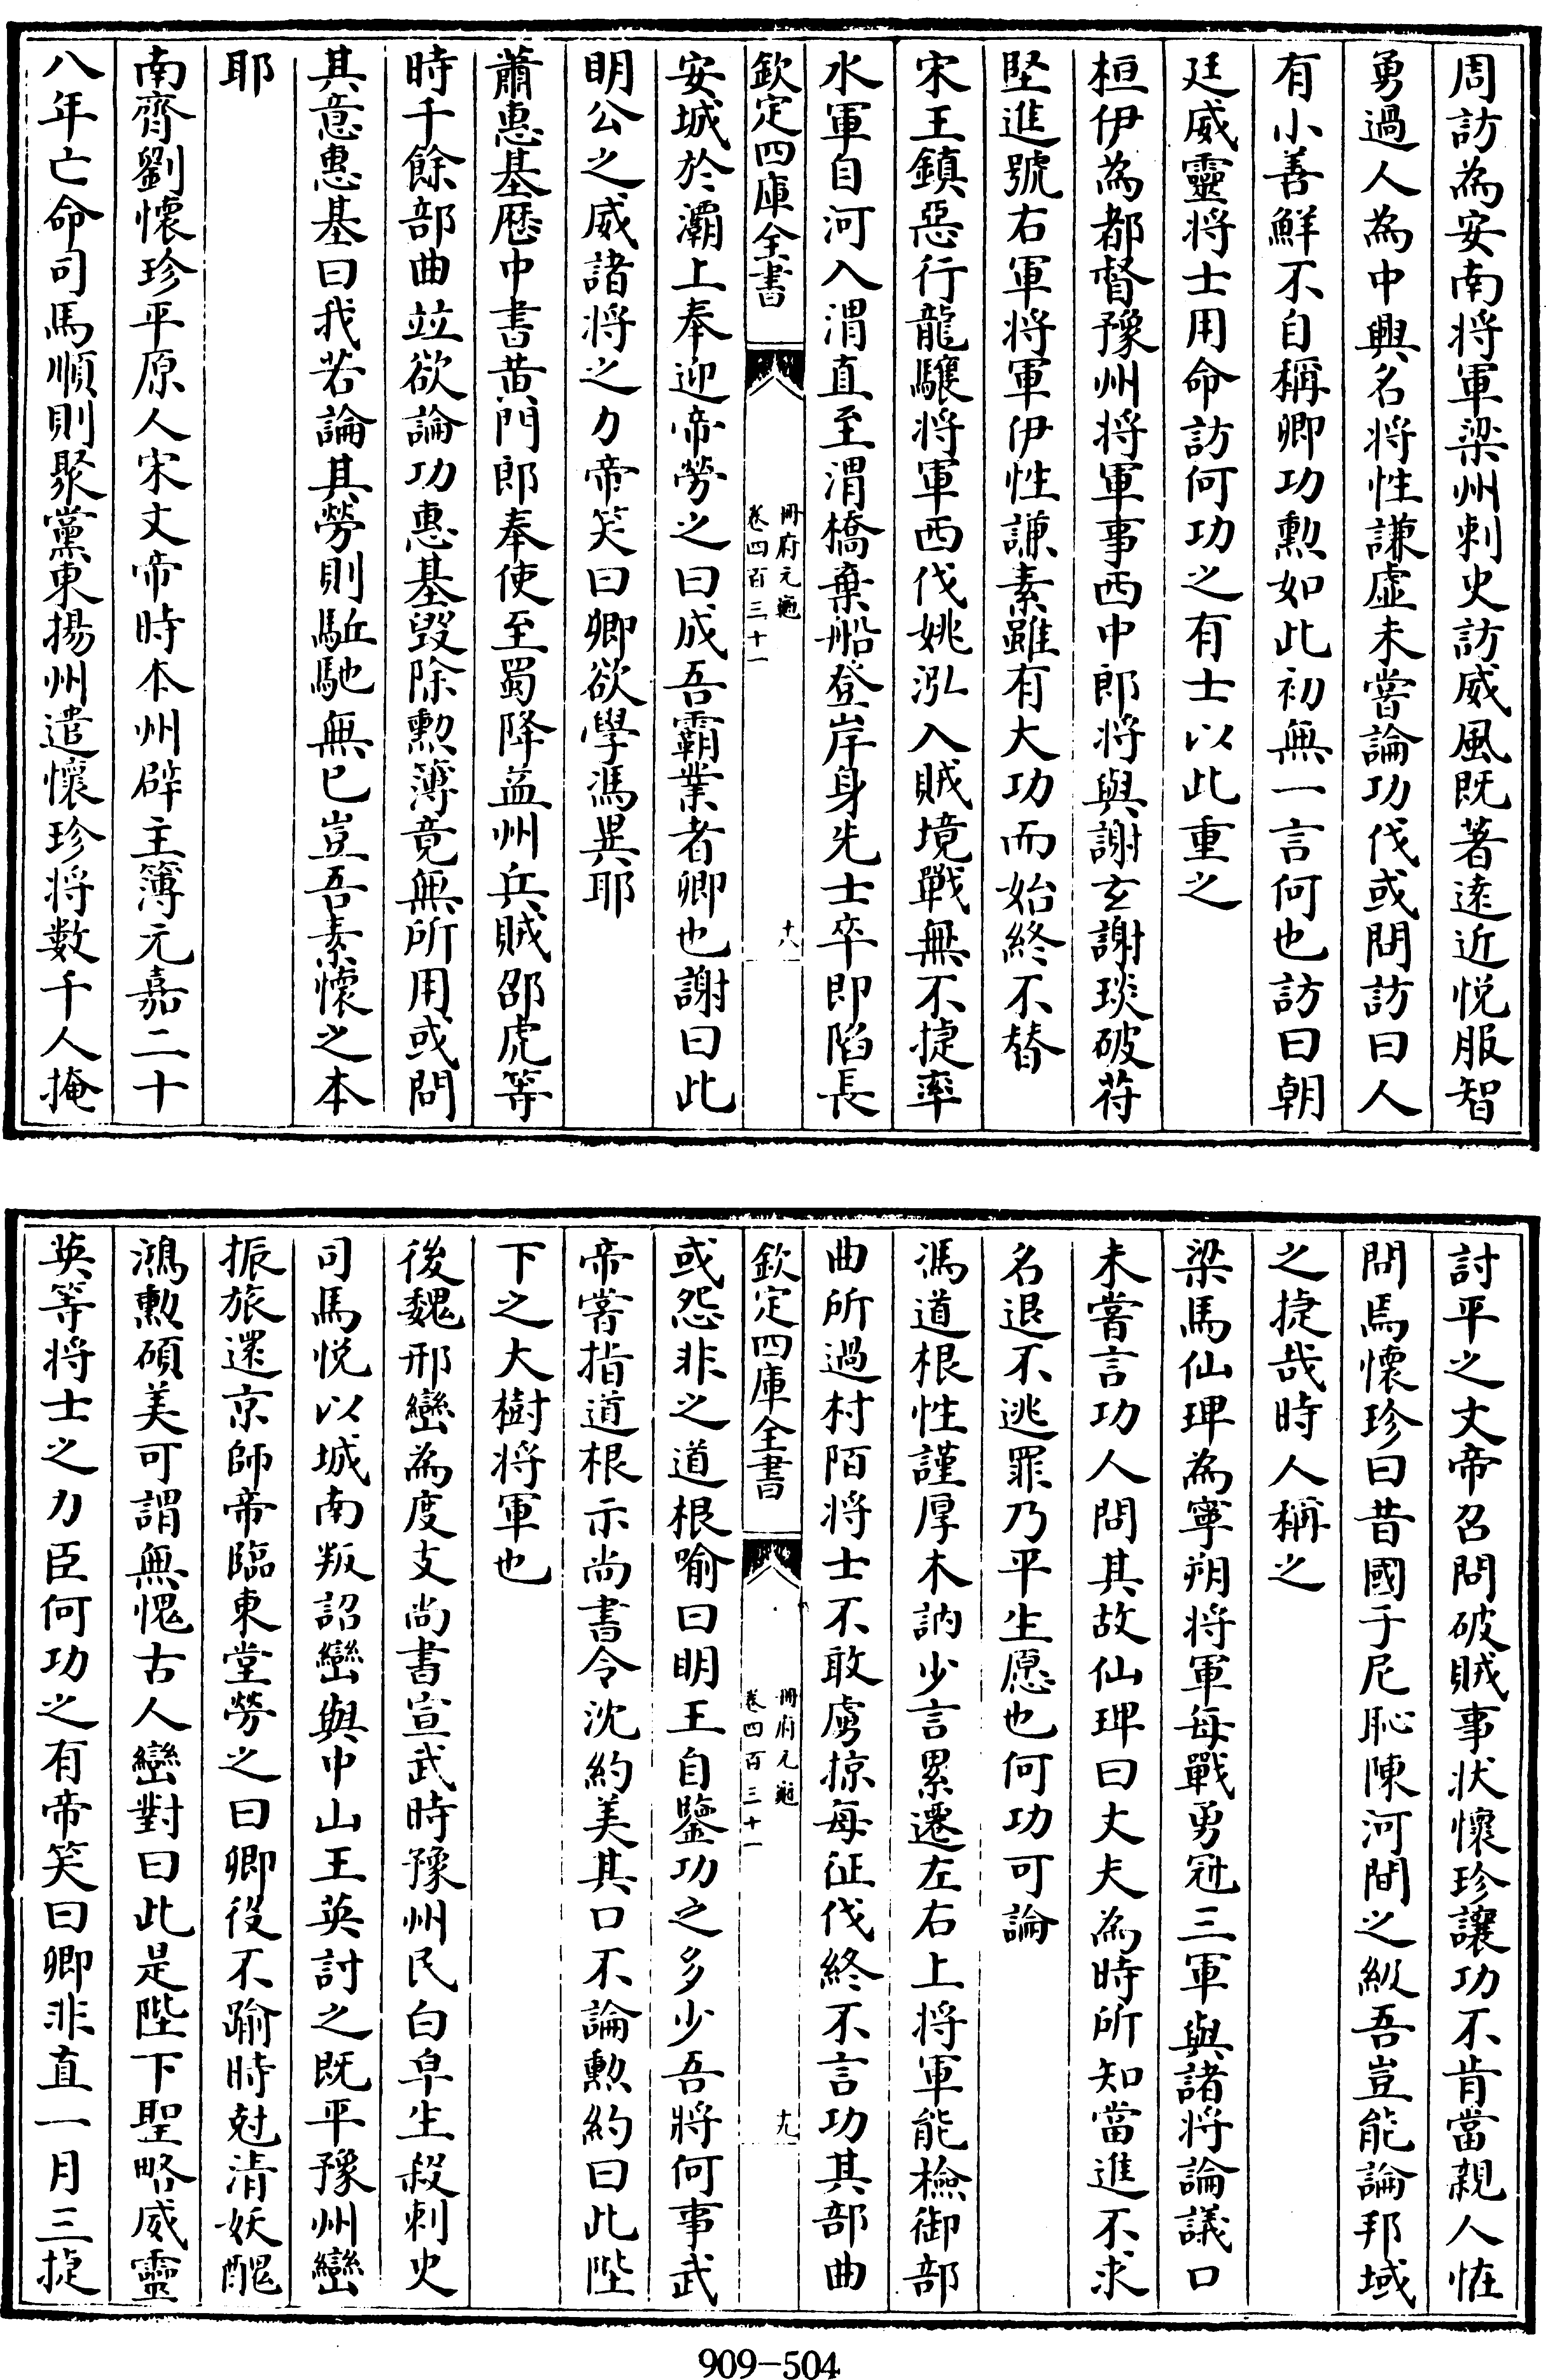 周訪為安南将軍梁州刺史訪威風既著遠近悦服智
勇過人為中興名将性謙虛未嘗論功伐或問訪曰人
有小善鮮不自稱卿功勲如此初無一言何也訪曰朝
廷威靈将士用命訪何功之有士以此重之
桓伊為都督豫州将軍事西中郎将與謝玄謝琰破苻
堅進號右軍将軍伊性謙素雖有大功而始終不替
宋王鎮惡行龍驤将軍西伐姚泓入賊境戰無不捷率
水軍自河入渭直至渭橋棄船登岸身先士卒即陷長
欽定四庫全書
冊府元龜
卷四百三十一
十八
安城於灞上奉迎帝勞之曰成吾霸業者卿也謝曰此
明公之威諸将之力帝笑曰卿欲學馮異耶
蕭惠基歴中書黄門郎奉使至蜀降益州兵賊邵虎等
時千餘部曲竝欲論功惠基毁除勲簿竟無所用或問
其意惠基曰我若論其勞則駈馳無已豈吾素懷之本
耶
南齊劉懷珍平原人宋文帝時本州辟主簿元嘉二十
八年亡命司馬順則聚黨東揚州遣懷珍将数千人掩
討平之文帝召問破賊事状懷珍讓功不肯當親人恠
問焉懷珍曰昔國子尼恥陳河間之級吾豈能論邦域
之捷哉時人稱之
梁馬仙琕為寧朔将軍每戰勇冠三軍與諸将論議口
未嘗言功人問其故仙琕曰丈夫為時所知當進不求
名退不逃罪乃平生愿也何功可論
馮道根性謹厚木訥少言累遷左右上将軍能檢御部
曲所過村陌将士不敢虜掠每征伐終不言功其部曲
欽定四庫全書
冊府元龜
卷四百三十一
十九
或怨非之道根喻曰明王自鑒功之多少吾將何事武
帝嘗指道根示尚書令沈約美其口不論勲約曰此陛
下之大樹将軍也
後魏邢巒為度支尚書宣武時豫州民白皁生殺刺史
司馬悦以城南叛詔巒與中山王英討之既平豫州巒
振旅還京師帝臨東堂勞之曰卿役不踰時尅清妖醜
鴻勲碩美可謂無愧古人巒對曰此是陛下聖略威靈
英等将士之力臣何功之有帝笑曰卿非直一月三捷
909-504